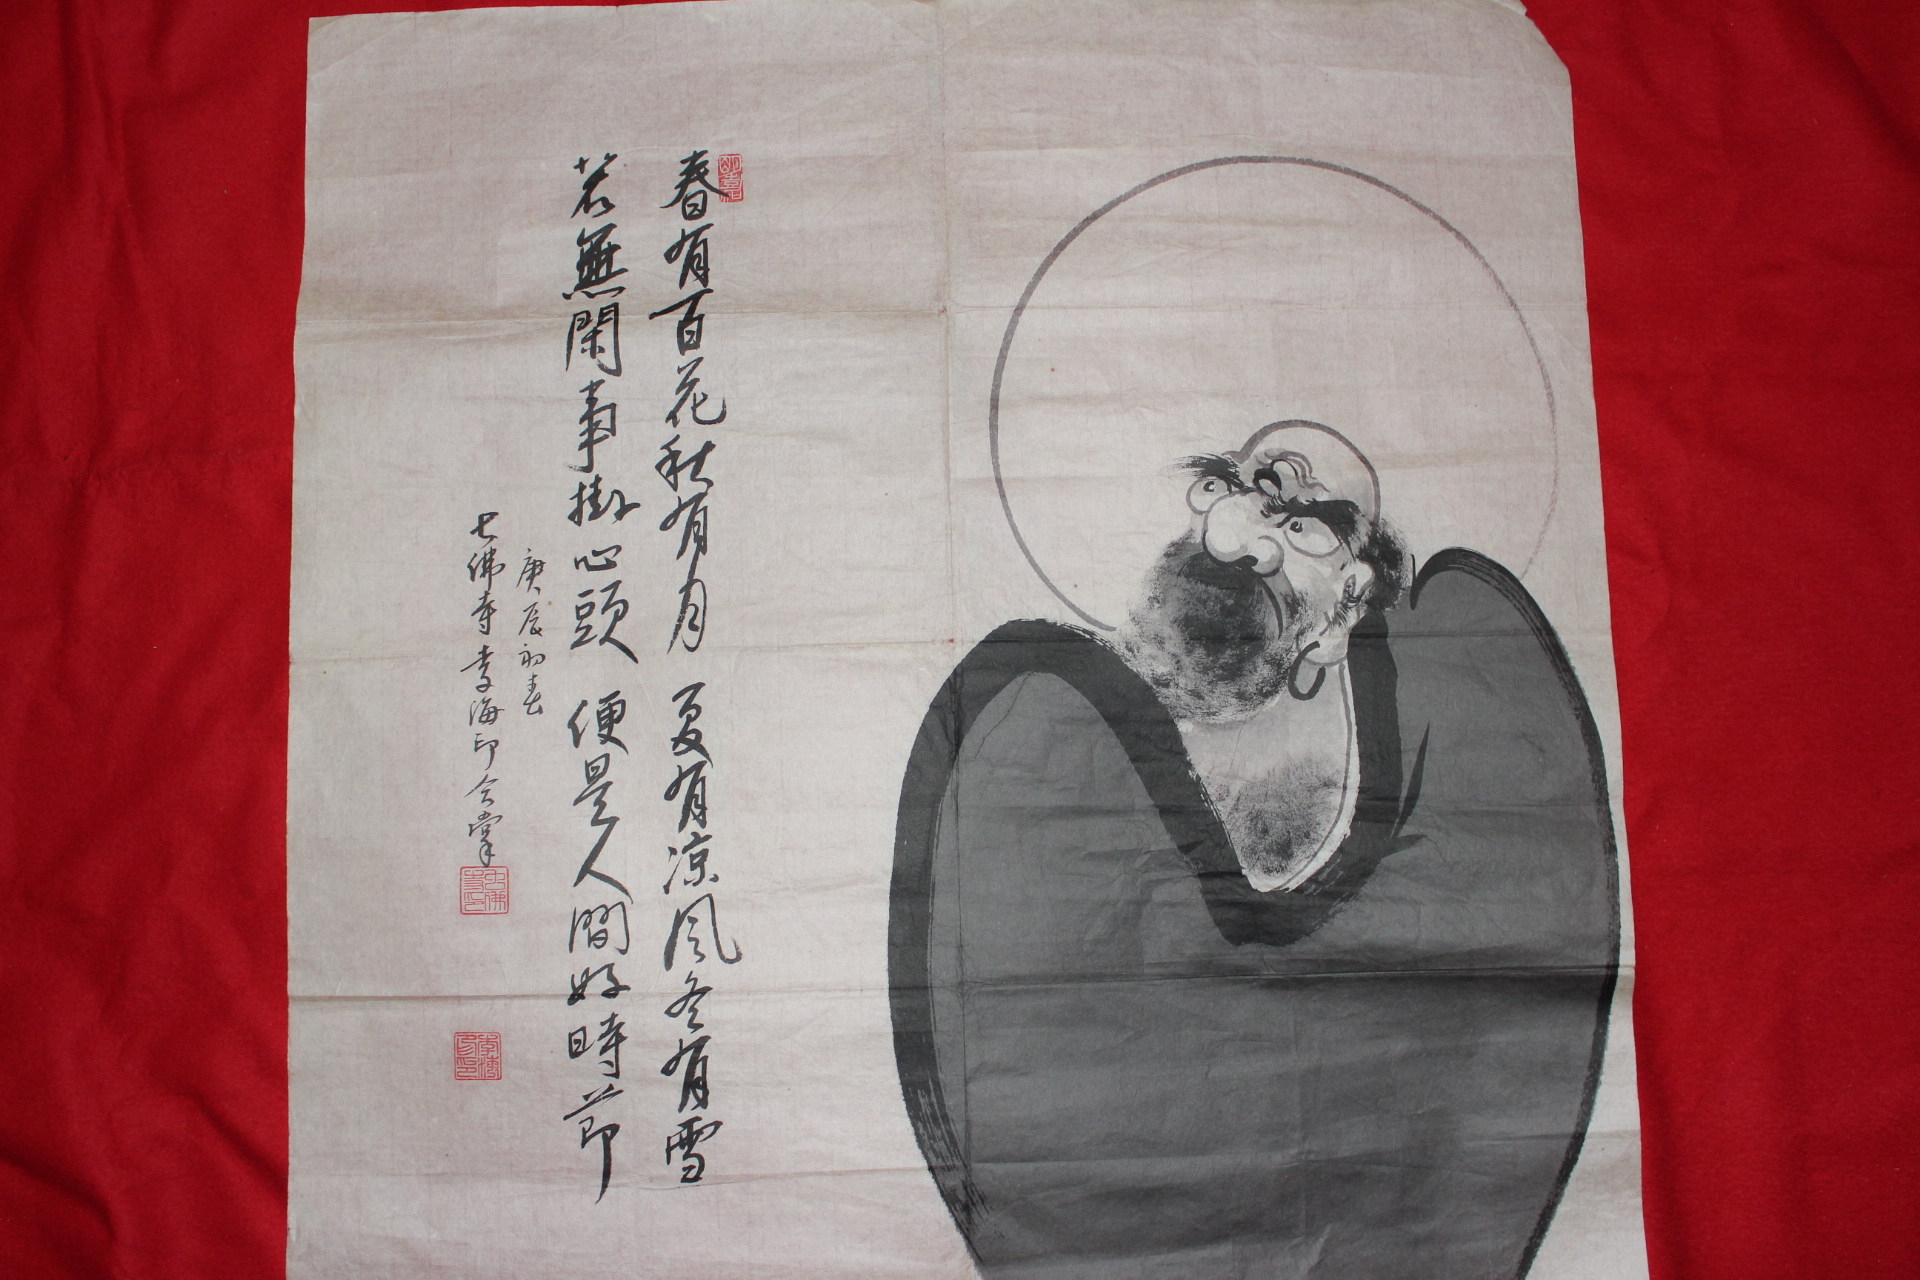 春有百花秋有月 夏有凉風冬有雪
若無閑事掛心頭 便是人間好時節
庚辰初春
七佛寺李海印合掌
七佛寺印